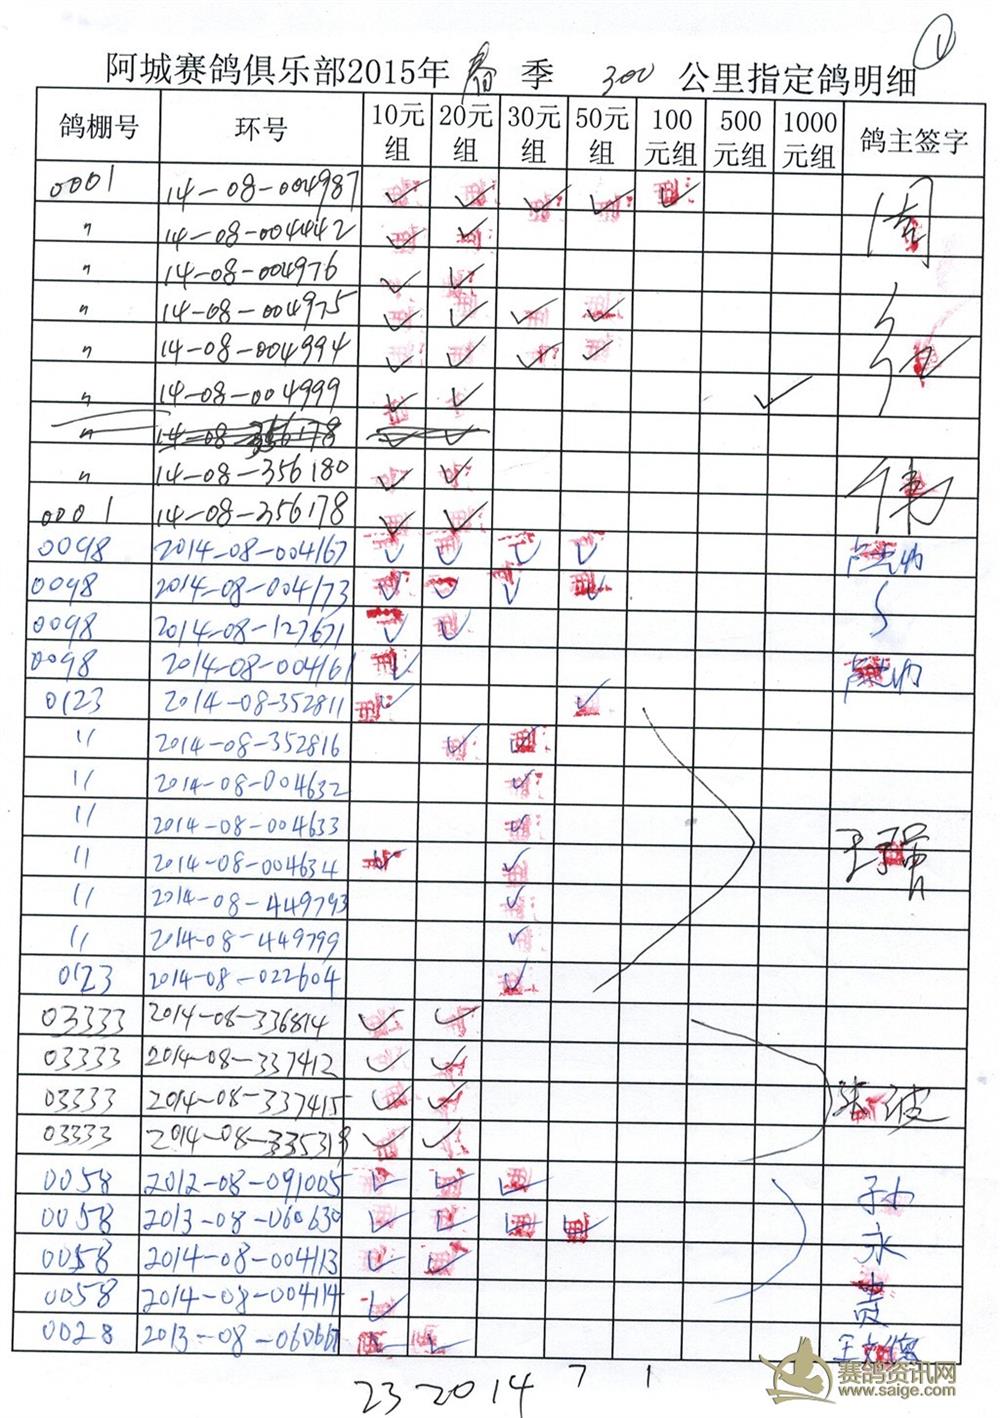 ①
阿城赛鸽俱乐部2015年 春 季 300 公里指定鸽明细
鸽棚号 环号 10元组 20元组 30元组 50元组 100元组 500元组 1000元组 鸽主签字
0001 14-08-004987 ✓ ✓ ✓ ✓ ✓ 周
〃 14-08-004442 ✓ ✓
〃 14-08-004976 ✓ ✓
〃 14-08-004975 ✓ ✓ ✓ ✓
〃 14-08-004994 ✓ ✓ ✓ ✓
〃 14-08-004999 ✓ ✓ ✓
〃 14-08-356178 ✓ ✓
〃 14-08-356180 ✓ ✓
0001 14-08-356178 ✓ ✓
0098 2014-08-004167 ✓ ✓ ✓ ✓
0098 2014-08-004173 ✓ ✓ ✓ ✓
0098 2014-08-127671 ✓ ✓
0098 2014-08-004161 ✓
0123 2014-08-352811 ✓ ✓
〃 2014-08-352816 ✓ ✓
〃 2014-08-004632 ✓
〃 2014-08-004633 ✓
〃 2014-08-004634 ✓ ✓ 王强
〃 2014-08-449793 ✓
〃 2014-08-449799 ✓
0123 2014-08-022604 ✓
03333 2014-08-336814 ✓ ✓
03333 2014-08-337412 ✓ ✓
03333 2014-08-337415 ✓ ✓
03333 2014-08-335319 ✓ ✓
0058 2012-08-091005 ✓ ✓ ✓ 孙
0058 2013-08-060630 ✓ ✓ ✓ ✓
0058 2014-08-004113 ✓ ✓ 永
0058 2014-08-004114 ✓ 贵
0028 2013-08-060667 ✓ ✓
23 20 14 7 1
赛鸽资讯网
www.saige.com